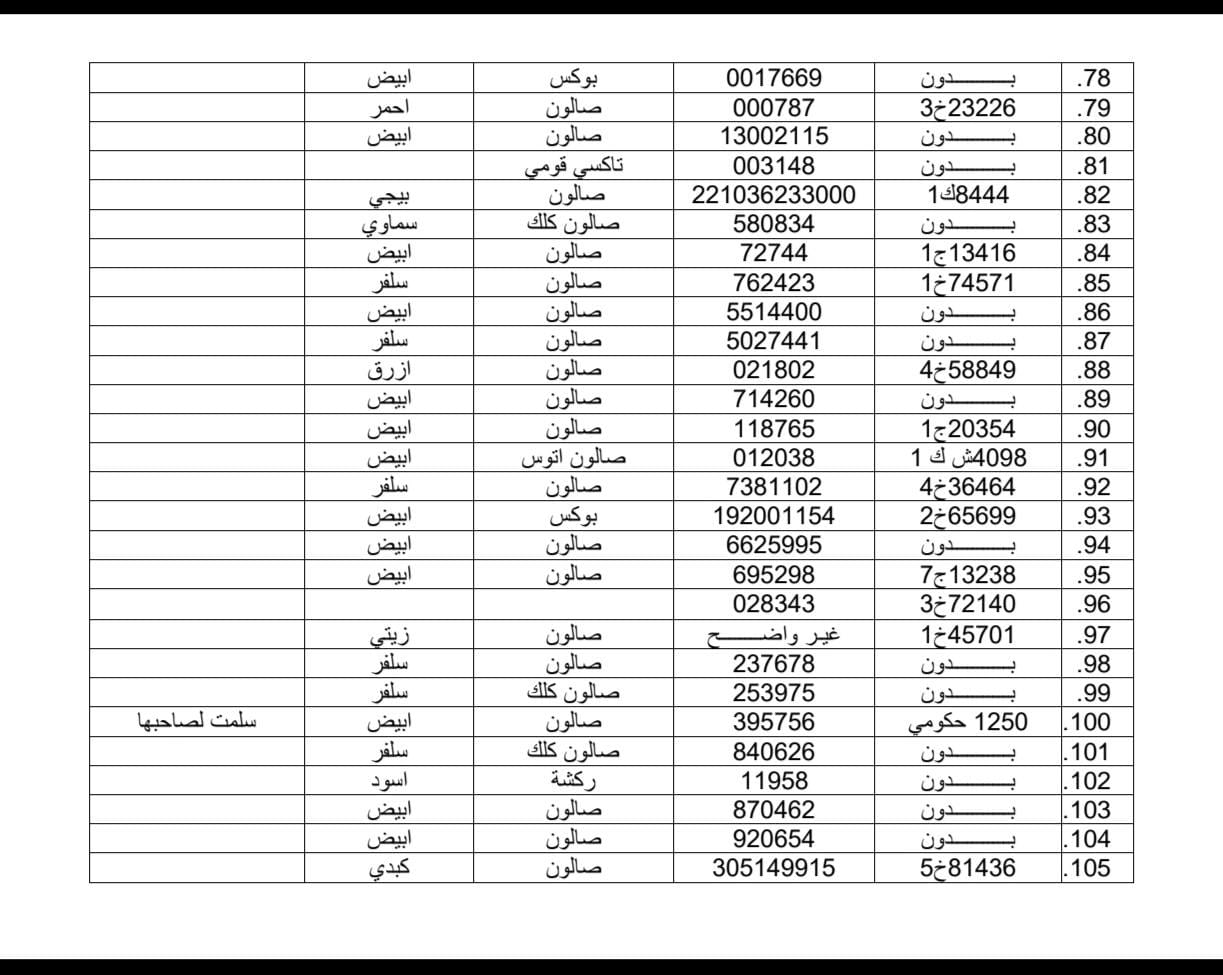 78. بـــــــدون 0017669 بوكس ابيض
79. 23226خ3 000787 صالون احمر
80. بـــــــدون 13002115 صالون ابيض
81. بـــــــدون 003148 تاكسي قومي
82. 8444ك1 221036233000 صالون بيجي
83. بـــــــدون 580834 صالون كلك سماوي
84. 13416ج1 72744 صالون ابيض
85. 74571خ1 762423 صالون سلفر
86. بـــــــدون 5514400 صالون ابيض
87. بـــــــدون 5027441 صالون سلفر
88. 58849خ4 021802 صالون ازرق
89. بـــــــدون 714260 صالون ابيض
90. 20354ج1 118765 صالون ابيض
91. 4098ش ك 1 012038 صالون اتوس ابيض
92. 36464خ4 7381102 صالون سلفر
93. 65699خ2 192001154 بوكس ابيض
94. بـــــــدون 6625995 صالون ابيض
95. 13238ج7 695298 صالون ابيض
96. 72140خ3 028343
97. 45701خ1 غير واضـــــــح صالون زيتي
98. بـــــــدون 237678 صالون سلفر
99. بـــــــدون 253975 صالون كلك سلفر
100. 1250 حكومي 395756 صالون ابيض سلمت لصاحبها
101. بـــــــدون 840626 صالون كلك سلفر
102. بـــــــدون 11958 ركشة اسود
103. بـــــــدون 870462 صالون ابيض
104. بـــــــدون 920654 صالون ابيض
105. 81436خ5 305149915 صالون كبدي